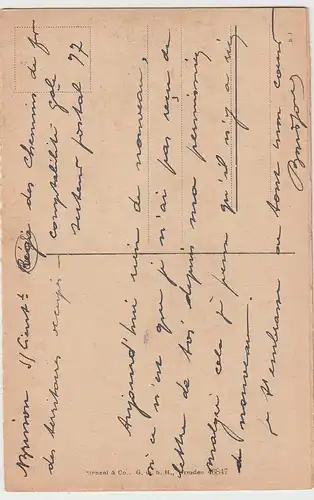 Régie des Chemins de fer
des territoires occupés
comptabilité gale
secteur postal 97
Aujourd'hui rien de nouveau,
si ce n'est que je n'ai pas reçu de
lettre de toi depuis ma permission
malgré cela je pense qu'il n'y a rien
de nouveau.
Je t'embrasse de tout mon cœur
& Co., G. m. b. H., Dresden 46847